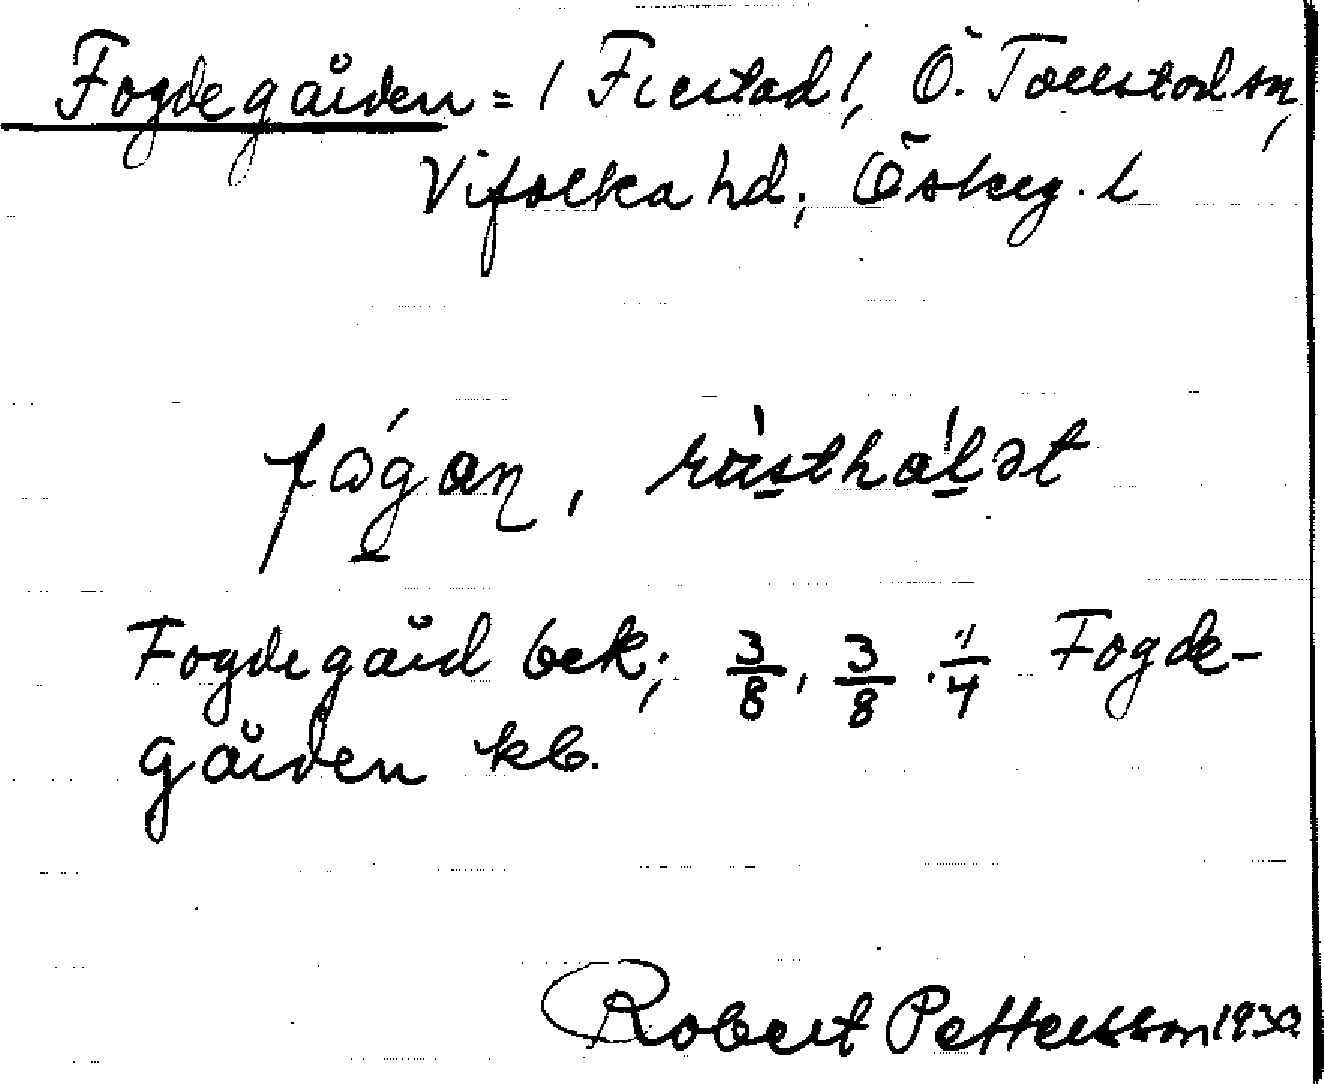 Fogdegården = / Frestad /, Ö. Tollstad sn,
Vifolka hd; Österg. l
fógan, rùsthàlət
Fogdegård bek; 3/8, 3/8, 1/4 Fogde-
gården kb.
Robert Pettersson 1930